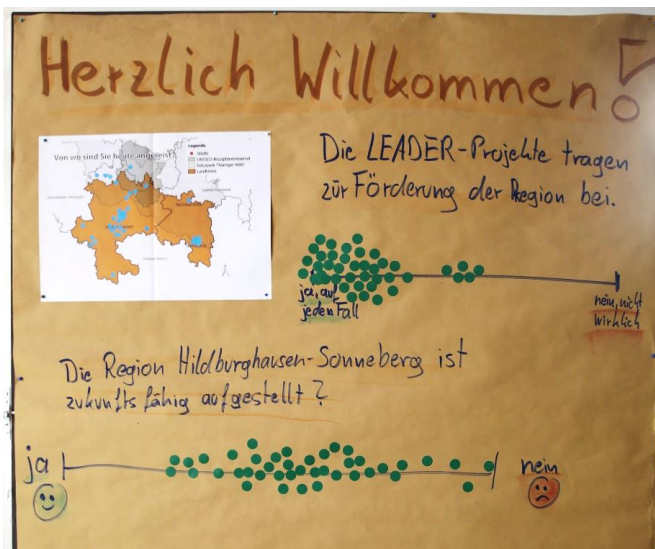 Herzlich Willkommen!
Von wo sind Sie heute angereist?
Legende
Städte
Landkreise
Die LEADER-Projekte tragen
zur Förderung der Region bei.
ja, auf
jeden Fall
nein, nicht
wirklich
Die Region Hildburghausen-Sonneberg ist
zukunftsfähig aufgestellt?
ja
nein